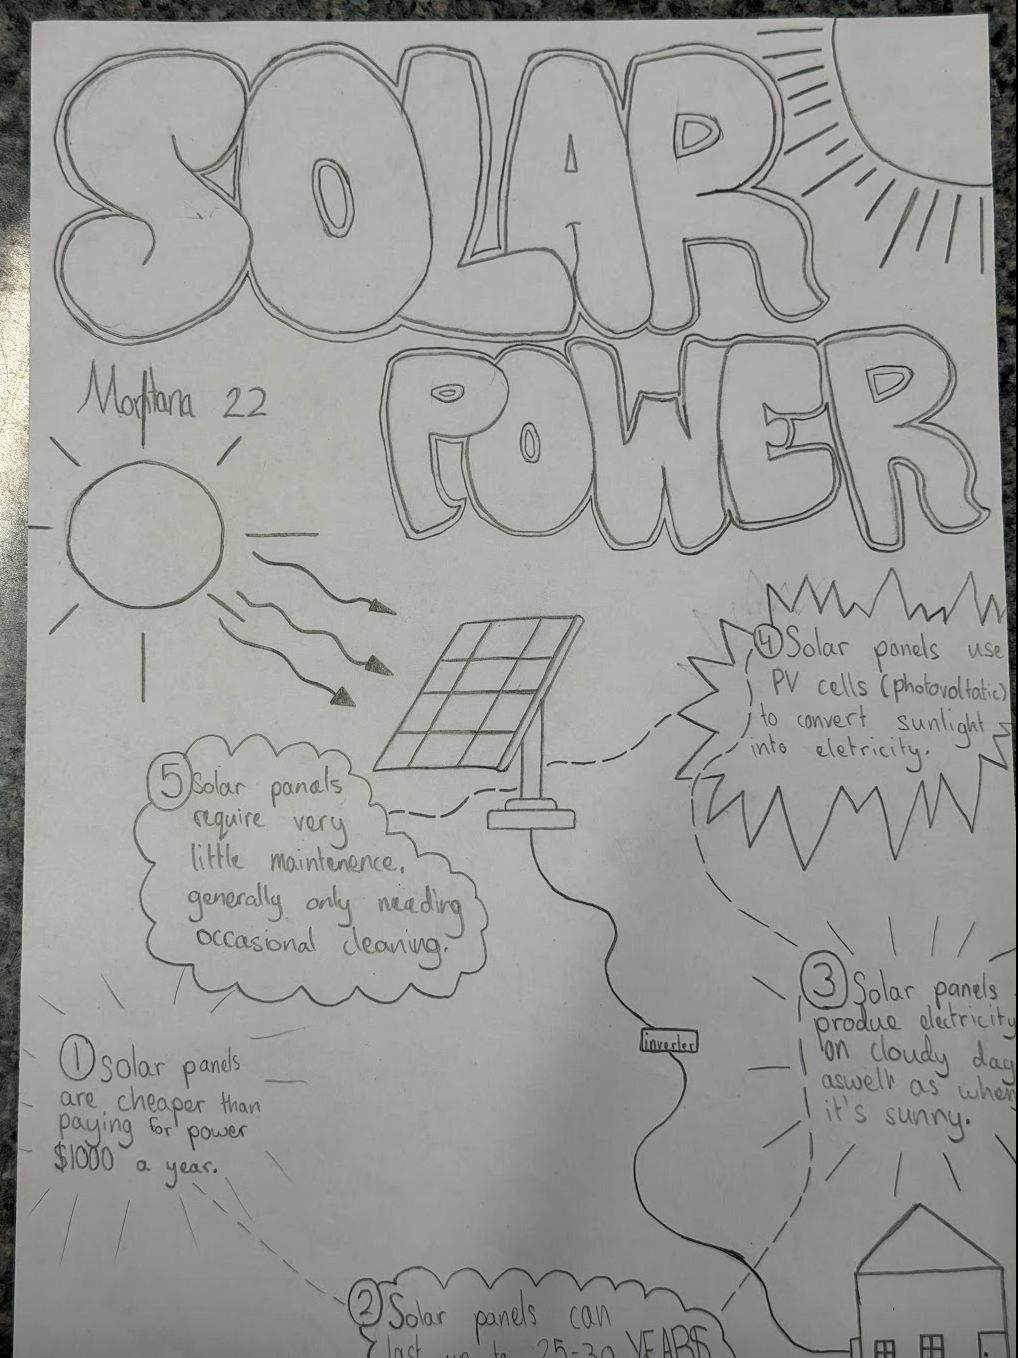 SOLAR
POWER
Montana 22
④ Solar panels use
PV cells (photovoltatic)
to convert sunlight
into eletricity.
⑤ Solar panels
require very
little maintenence,
generally only needing
occasional cleaning.
③ Solar panels
produe electricity
on cloudy day
aswell as when
it's sunny.
inverter
① Solar panels
are cheaper than
paying for power
$1000 a year.
② Solar panels can
last up to 25-30 YEARS